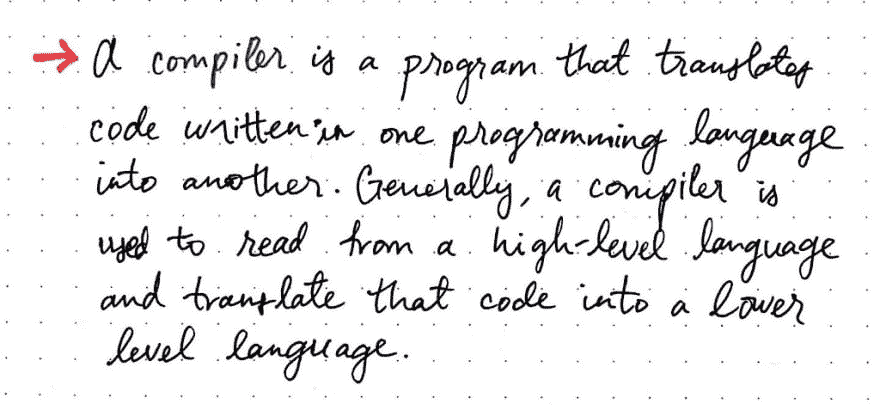 → A compiler is a program that translates
code written in one programming language
into another. Generally, a compiler is
used to read from a high-level language
and translate that code into a lower
level language.